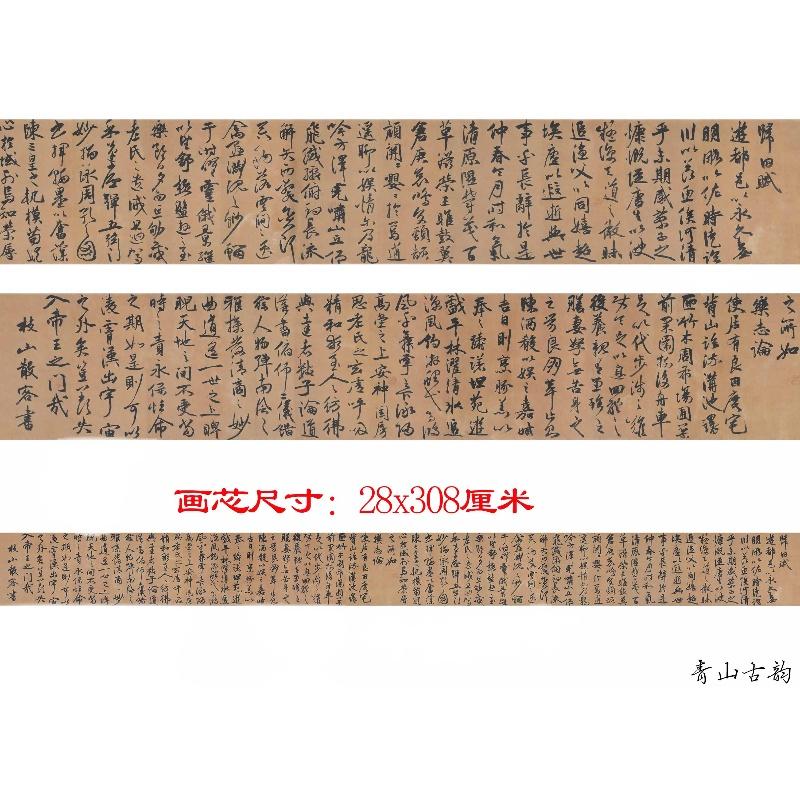 歸田賦
遊都邑以永久無
明略以佐時徒臨
川以羨魚俟河清
乎未期感蔡子之
慷慨從唐生以決
疑諒天道之微昧
追漁父以同嬉超
埃塵以遐逝與世
事乎長辭於是
仲春令月時和氣
清原隰鬱茂百
草滋榮王雎鼓翼
倉庚哀鳴交頸頡
頏關關嚶嚶於焉逍
遙聊以娛情爾乃龍
吟方澤虎嘯山丘仰
飛纖繳俯釣長流
觸矢而斃貪餌
吞鉤落雲間之逸
禽懸淵沉之魦鰡
于時曜靈俄景繼
以望舒極盤遊之至
樂雖日夕而忘劬感
老氏之遺誡且迴駕
乎蓬廬彈五絃之
妙指詠周孔之圖
書揮翰墨以奮藻
陳三皇之軌模苟縱
心於域外焉知榮辱
之所如
樂志論
使居有良田廣宅
背山臨流溝池環
匝竹木周布場圃築
前果園樹後舟車
足以代步涉之難
使令足以息四體之
役養親有兼珍之
膳妻孥無苦身
之勞良朋萃止則
陳酒餚以娛之嘉時
吉日則烹豚羔以
奉之躊躇畦苑遊
戲平林濯清水追
涼風釣游鯉弋高鴻
風於舞雩之下詠歸
高堂之上安神閨房
思老氏之玄虛呼吸
精和求至人之彷彿
與達者數子論道
講書俯仰二儀錯
綜人物彈南風之
雅操發清商之妙
曲逍遙一世之上睥
睨天地之間不受當
時之責永保性命
之期如是則可以
凌霄漢出宇宙
之外矣豈羨夫
入帝王之門哉
枝山散客書
画芯尺寸：28x308厘米
青山古韵